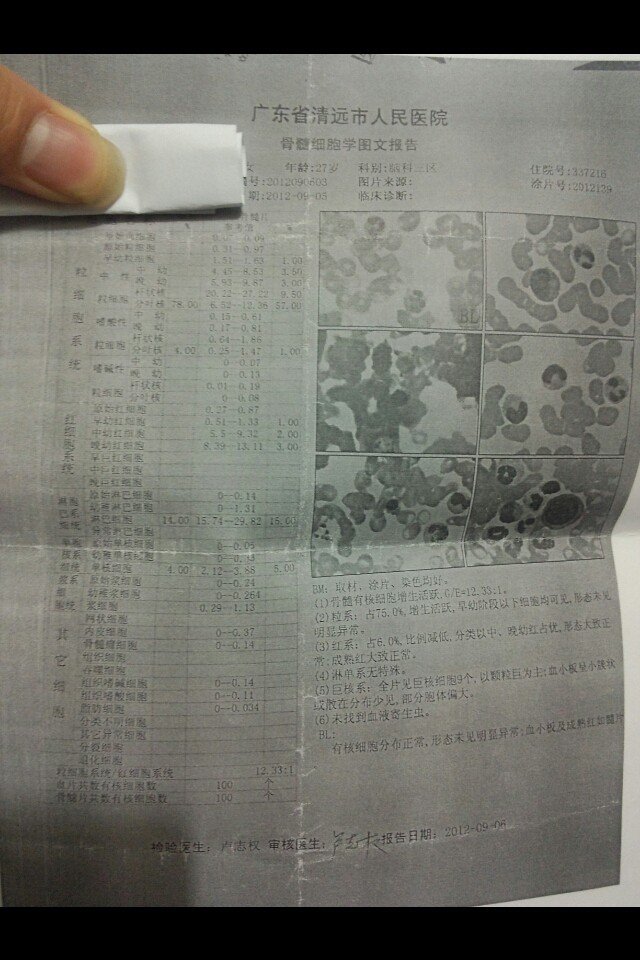 广东省清远市人民医院
骨髓细胞学图文报告
女 年龄:27岁 科别:脑科三区 住院号:337216
号:2012090603 图片来源: 涂片号:2012139
期:2012-09-05 临床诊断:
参考值
原始粒细胞 0.31--0.97
早幼粒细胞 1.51--1.63 1.00
粒 中性 中 幼 4.45--8.53 3.50
晚 幼 5.93--9.87 3.00
细 粒细胞 杆状核 20.22--27.22 9.50
分叶核 78.00 6.52--12.36 57.00
胞 嗜酸性 中 幼 0.15--0.61
晚 幼 0.17--0.81
系 粒细胞 杆状核 0.64--1.86
分叶核 4.00 0.25--1.47 1.00
统 嗜碱性 中 幼 0--0.07
晚 幼 0--0.13
粒细胞 杆状核 0.01--0.19
分叶核 0--0.08
红 原始红细胞 0.27--0.87
细 早幼红细胞 0.51--1.33 1.00
胞 中幼红细胞 5.5--9.32 2.00
系 晚幼红细胞 8.39--13.11 3.00
统 早巨红细胞
中巨红细胞
晚巨红细胞
淋胞 原始淋巴细胞 0--0.14
巴系 幼稚淋巴细胞 0--1.31
细统 淋巴细胞 14.00 15.74--29.82 15.00
异常淋巴细胞
原始单核细胞
幼稚单核细胞
单核细胞 4.00 2.12--3.88 5.00
原始浆细胞 0--0.24
幼稚浆细胞 0--0.264
胞统 浆细胞 0.29--1.13
网状细胞
其 内皮细胞 0--0.37
骨髓巨细胞 0--0.14
它 组织细胞
吞噬细胞
细 组织嗜碱细胞 0--0.14
组织嗜酸细胞 0--0.11
胞 脂肪细胞 0--0.034
分类不明细胞
其它异常细胞
分裂细胞
退化细胞
粒细胞系统/红细胞系统 12.33:1
血片共数有核细胞数 100 个
骨髓片共数有核细胞数 100 个
BL
BM: 取材、涂片、染色均好。
(1)骨髓有核细胞增生活跃,G/E=12.33:1。
(2)粒系: 占75.0%,增生活跃,早幼阶段以下细胞均可见,形态未见
明显异常。
(3)红系: 占6.0%,比例减低,分类以中、晚幼红占优,形态大致正
常;成熟红大致正常。
(4)淋单系无特殊。
(5)巨核系: 全片见巨核细胞9个,以颗粒巨为主;血小板呈小簇状
或散在分布少见,部分胞体偏大。
(6)未找到血液寄生虫。
BL:
有核细胞分布正常,形态未见明显异常;血小板及成熟红如髓片
检验医生: 卢志权 审核医生: 报告日期: 2012-09-06